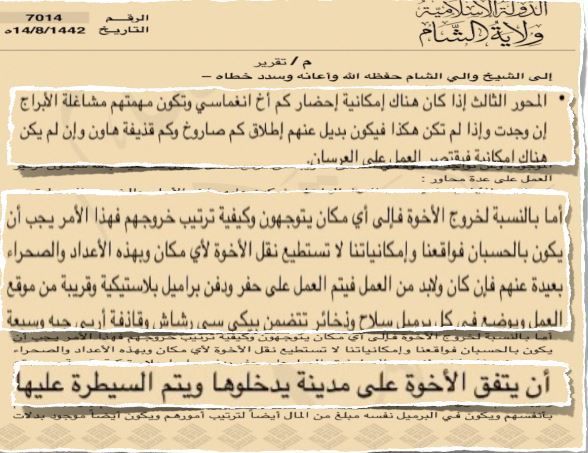 الدولة الإسلامية
ولاية الشام
الرقم 7014
التاريخ 14/8/1442ه
م/ تقرير
إلى الشيخ والي الشام حفظه الله وأعانه وسدد خطاه –
• المحور الثالث إذا كان هناك إمكانية إحضار كم أخ انغماسي وتكون مهمتهم مشاغلة الأبراج
إن وجدت وإذا لم تكن هكذا فيكون بديل عنهم إطلاق كم صاروخ وكم قذيفة هاون وإن لم يكن
هناك إمكانية فيقتصر العمل على العرسان.
العمل على عدة محاور :
أما بالنسبة لخروج الأخوة فإلى أي مكان يتوجهون وكيفية ترتيب خروجهم فهذا الأمر يجب أن
يكون بالحسبان فواقعنا وإمكانياتنا لا تستطيع نقل الأخوة لأي مكان وبهذه الأعداد والصحراء
بعيدة عنهم فإن كان ولابد من العمل فيتم العمل على حفر ودفن براميل بلاستيكية وقريبة من موقع
العمل ويوضع في كل برميل سلاح وذخائر تتضمن بيكي سي رشاش وقاذفة أربي جيه وسبعة
أما بالنسبة لخروج الأخوة فإلى أي مكان يتوجهون وكيفية ترتيب خروجهم فهذا الأمر يجب أن
يكون بالحسبان فواقعنا وإمكانياتنا لا تستطيع نقل الأخوة لأي مكان وبهذه الأعداد والصحراء
أن يتفق الأخوة على مدينة يدخلوها ويتم السيطرة عليها
بأنفسهم ويكون في البرميل نفسه مبلغ من المال أيضاً لترتيب أمورهم ويكون أيضاً موجود بدلات